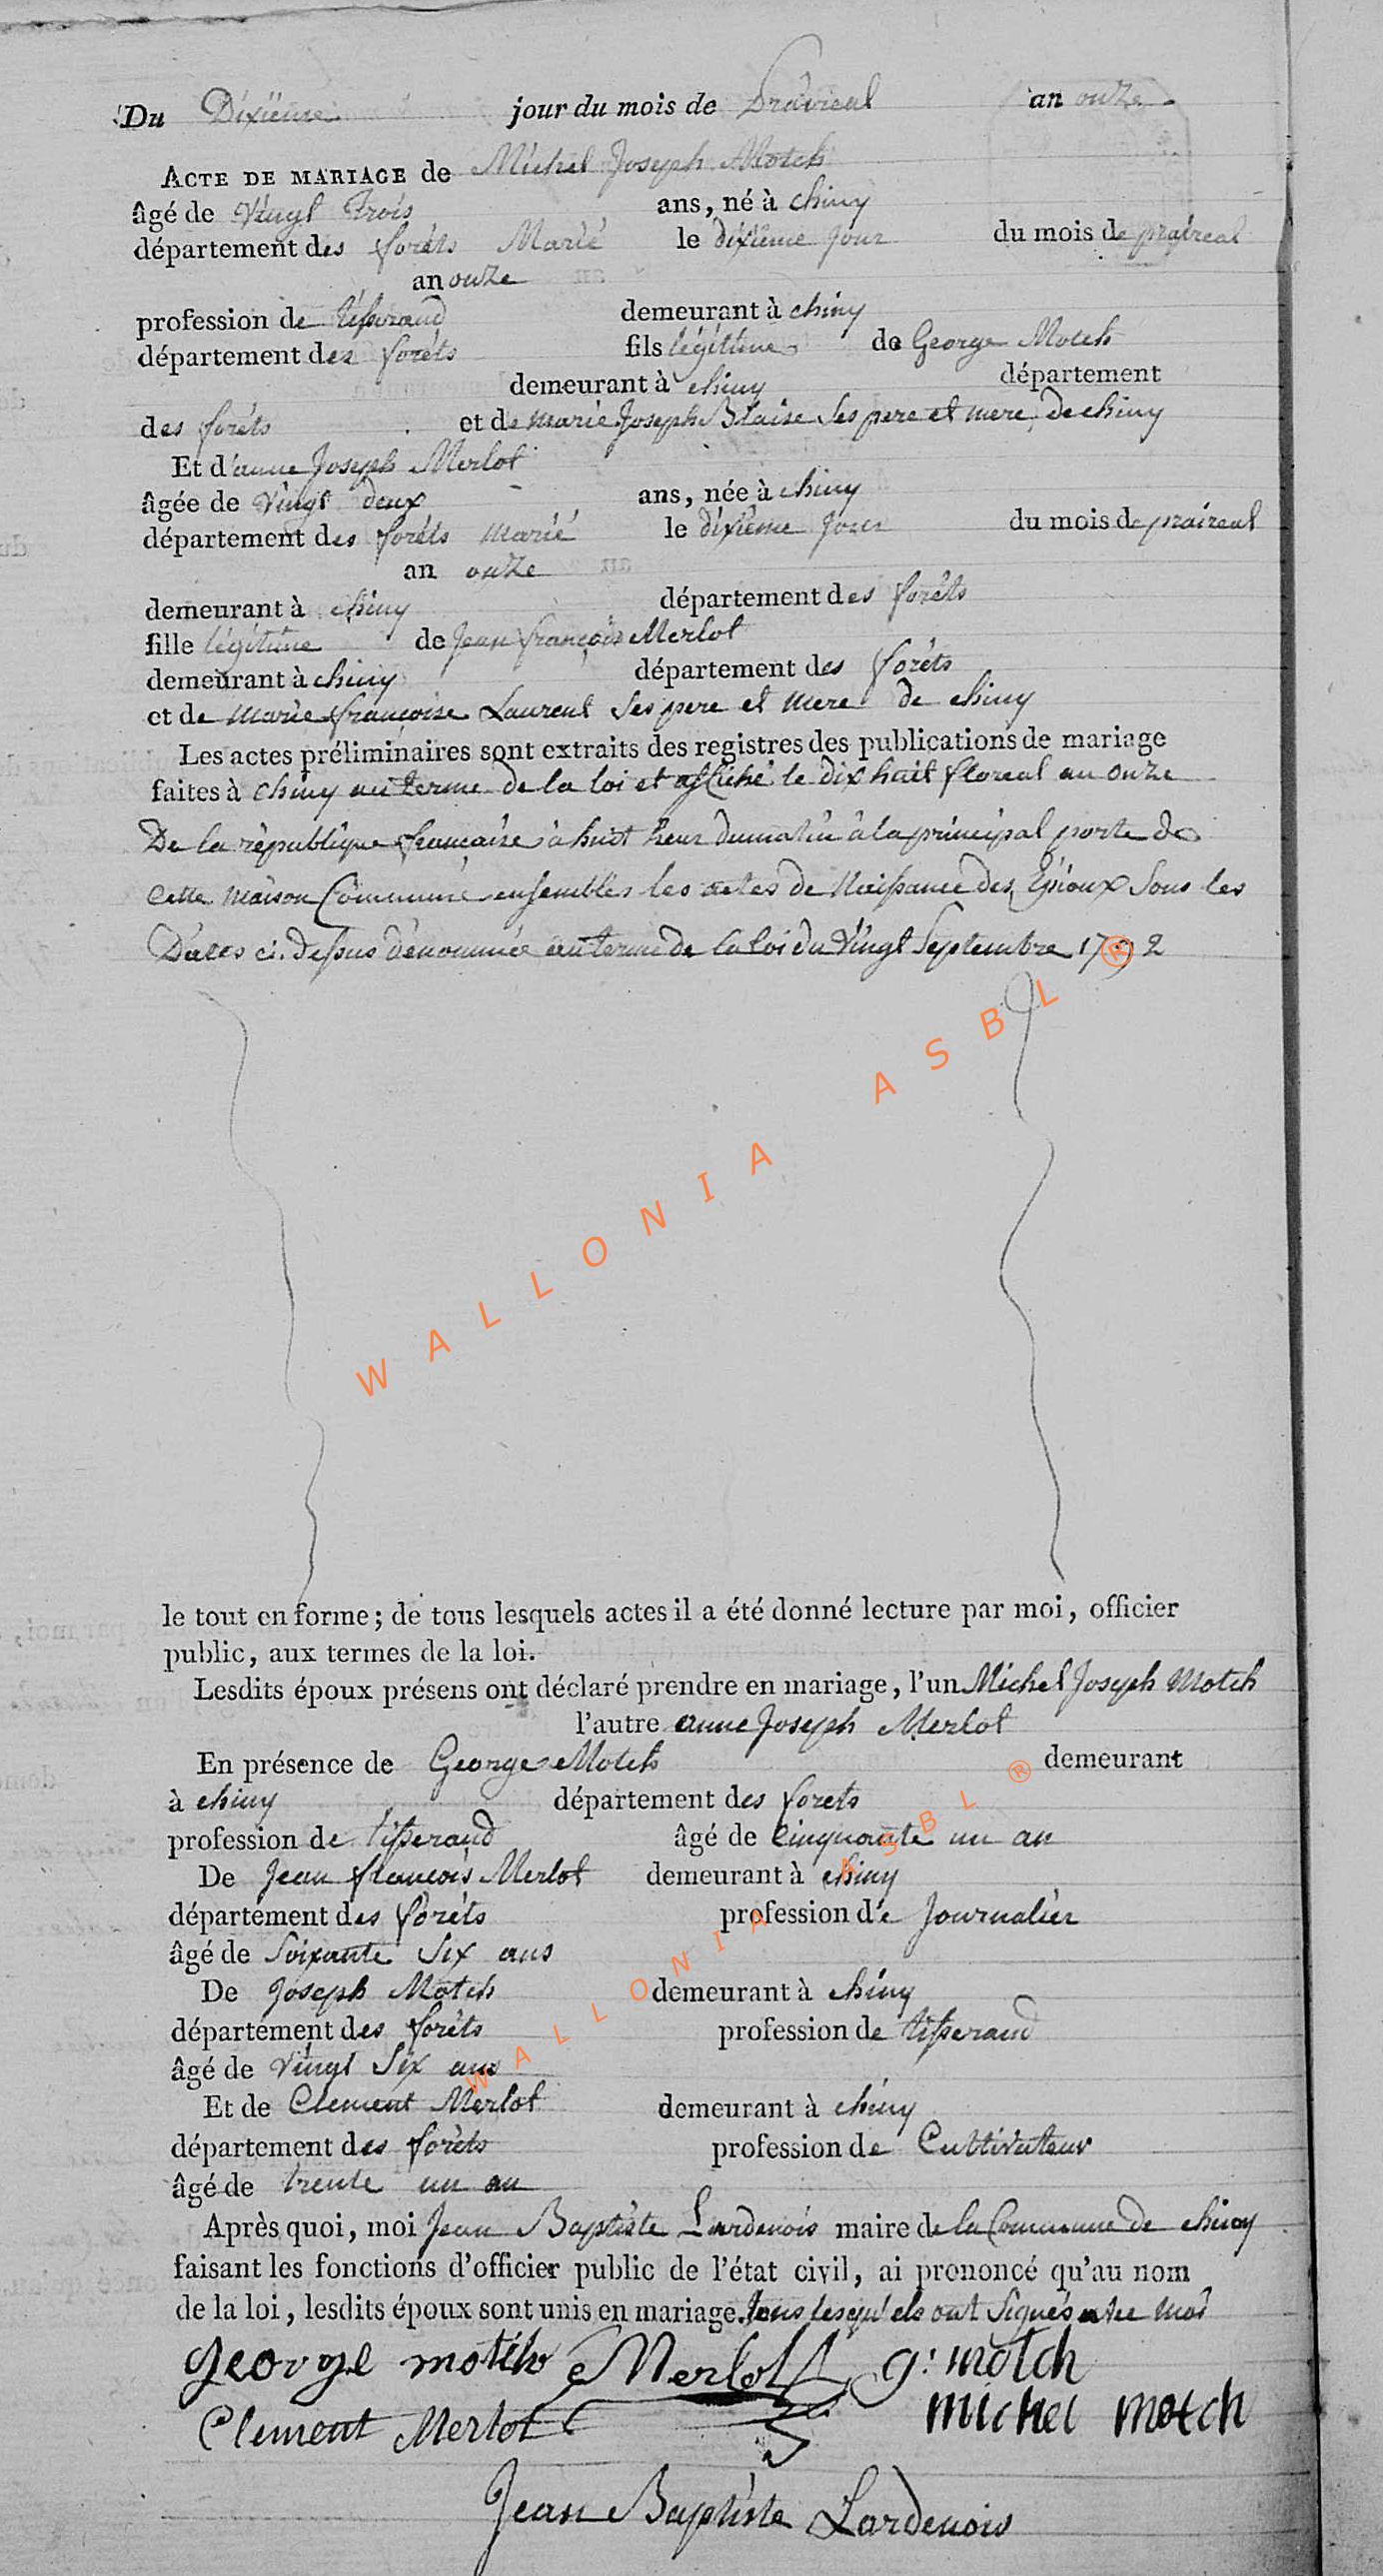 Du Dixiéme jour du mois de Prairéal an onze
ACTE DE MARIAGE de Michel Joseph Motch
âgé de Vingt Trois ans, né à chiny
département des foréts Marié le dixiéme jour du mois de prairéal
an onze
profession de tisserand demeurant à chiny
département des foréts fils légitime de George Motch
demeurant à chiny département
des foréts et de marie Joseph Blaise Ses pere et mere, de chiny
Et d'anne Joseph Merlot
âgée de Vingt deux ans, née à chiny
département des foréts marié le dixiéme jour du mois de praireal
an onze
demeurant à chiny département des foréts
fille légitime de Jean françois Merlot
demeurant à chiny département des foréts
et de marie françoise Laurent Ses pere et mere de chiny
Les actes préliminaires sont extraits des registres des publications de mariage
faites à chiny au terme de la loi et affiché le dix huit floreal an onze
De la république française à huit heur du matin à la principal porte de
cette maison Commune ensembles les actes de Naissance des Epioux Sous les
Dates ci. dessus dénommée au terme de la loi du Vingt Septembre 1792
WALLONIA ASBL ®
le tout en forme; de tous lesquels actes il a été donné lecture par moi, officier
public, aux termes de la loi.
Lesdits époux présens ont déclaré prendre en mariage, l'un Michel Joseph Motch
l'autre anne Joseph Merlot
En présence de George Motch demeurant
à chiny département des forets
profession de tisserand âgé de Cinquante un an
De Jean françois Merlot demeurant à chiny
département des foréts profession de Journalier
âgé de Soixante Six ans
De Joseph Motch demeurant à chiny
département des foréts profession de tisserand
âgé de Vingt Six ans
Et de Clement Merlot demeurant à chiny
département des foréts profession de Cultivateur
âgé de trente un an
WALLONIA ASBL ®
Après quoi, moi Jean Baptiste Lardenois maire de la Commune de chiny
faisant les fonctions d'officier public de l'état civil, ai prononcé qu'au nom
de la loi, lesdits époux sont unis en mariage. tous lesqu'els ont Signés moi
george motch Merlot g: motch
Clement Merlot michel motch
Jean Baptiste Lardenois